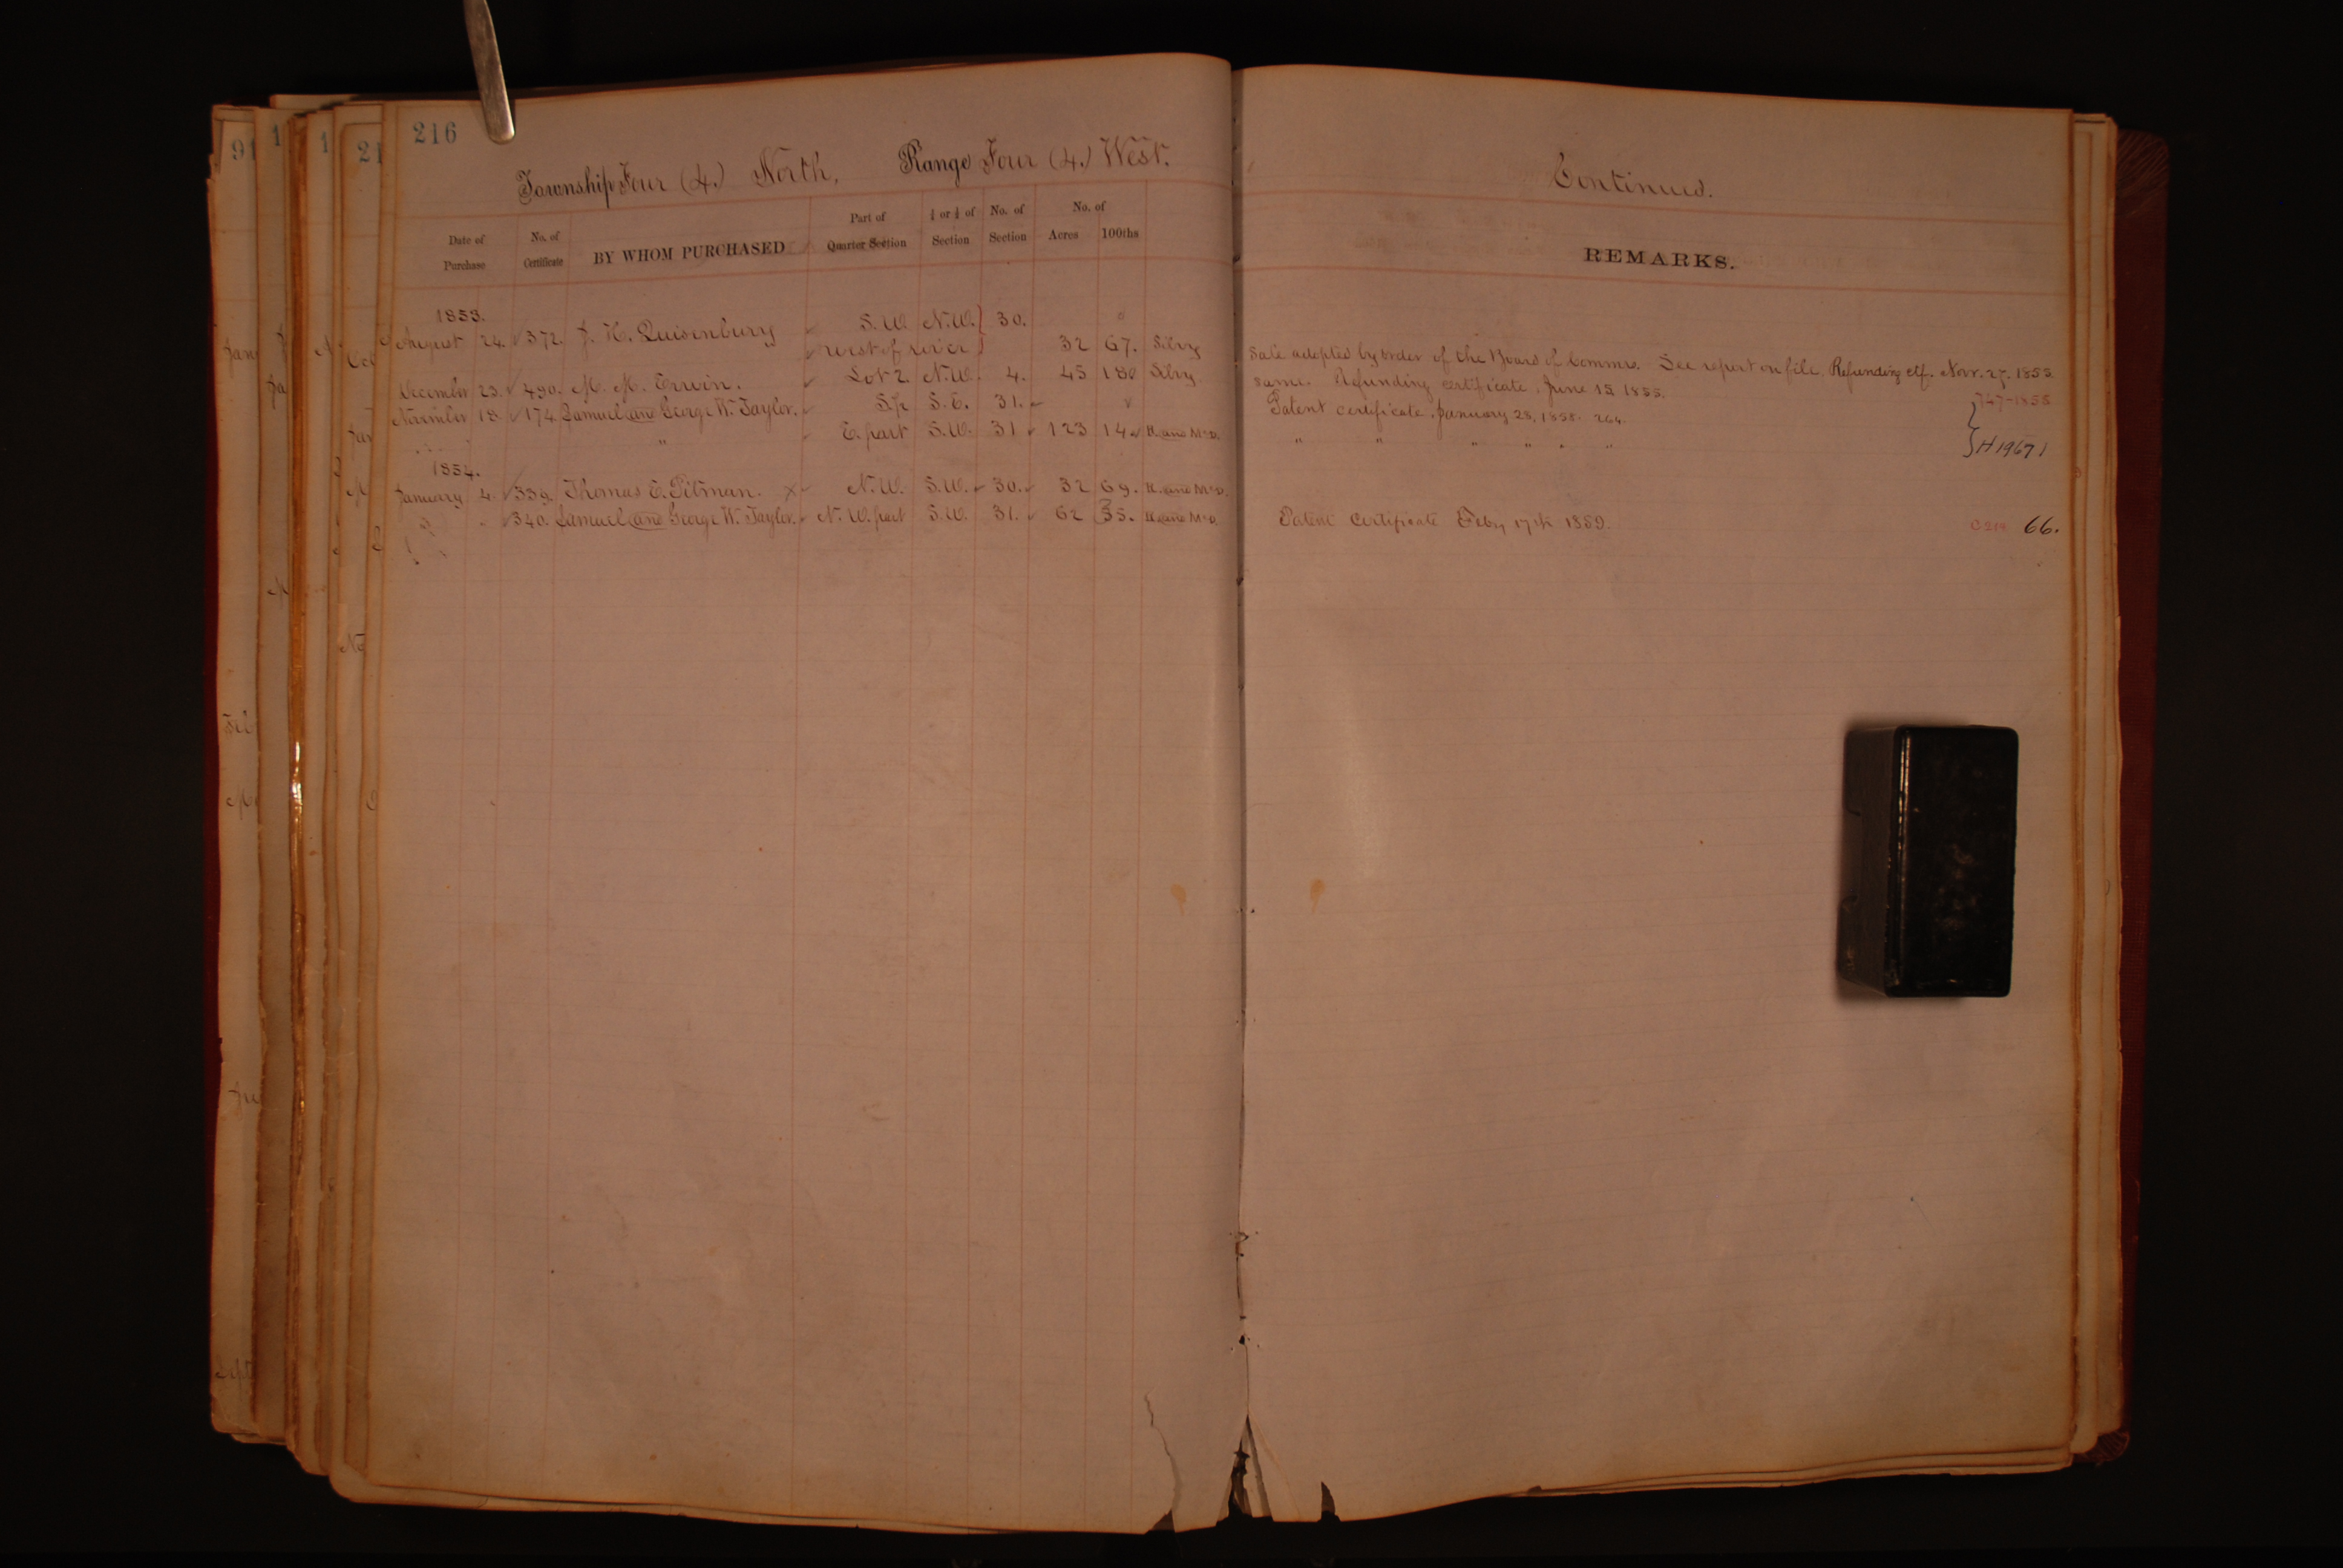 216
Township Four (4.) North, Range Four (4.) West.
Date of Purchase No. of Certificate BY WHOM PURCHASED Part of Quarter Section ½ or ¼ of Section No. of Section No. of Acres 100ths
1853.
August 24. 372. J. H. Quisenbury S.W. N.W. 30.
west of river 32 67. Silvy
December 23. 490. M. M. Erwin. Lot 2. N.W. 4. 45 180 Silvy.
November 18. 174. Samuel and George W. Taylor. S.E. 31.
" E. part S.W. 31 123 14 H. and McD.
1854.
January 4. 339. Thomas E. Pitman. X N.W. S.W. 30. 32 69. H. and McD.
" 340. Samuel and George W. Taylor. N.W. part S.W. 31. 62 35. H. and McD.
Continued.
REMARKS.
Sale adopted by order of the Board of Commrs. See report on file. Refunding ctf. Novr. 27. 1855.
same. Refunding certificate, June 15 1855.
Patent certificate, January 25, 1858. 264. 747-1858
" " " " " " H 19671
Patent Certificate Feby 17th 1859. 66.